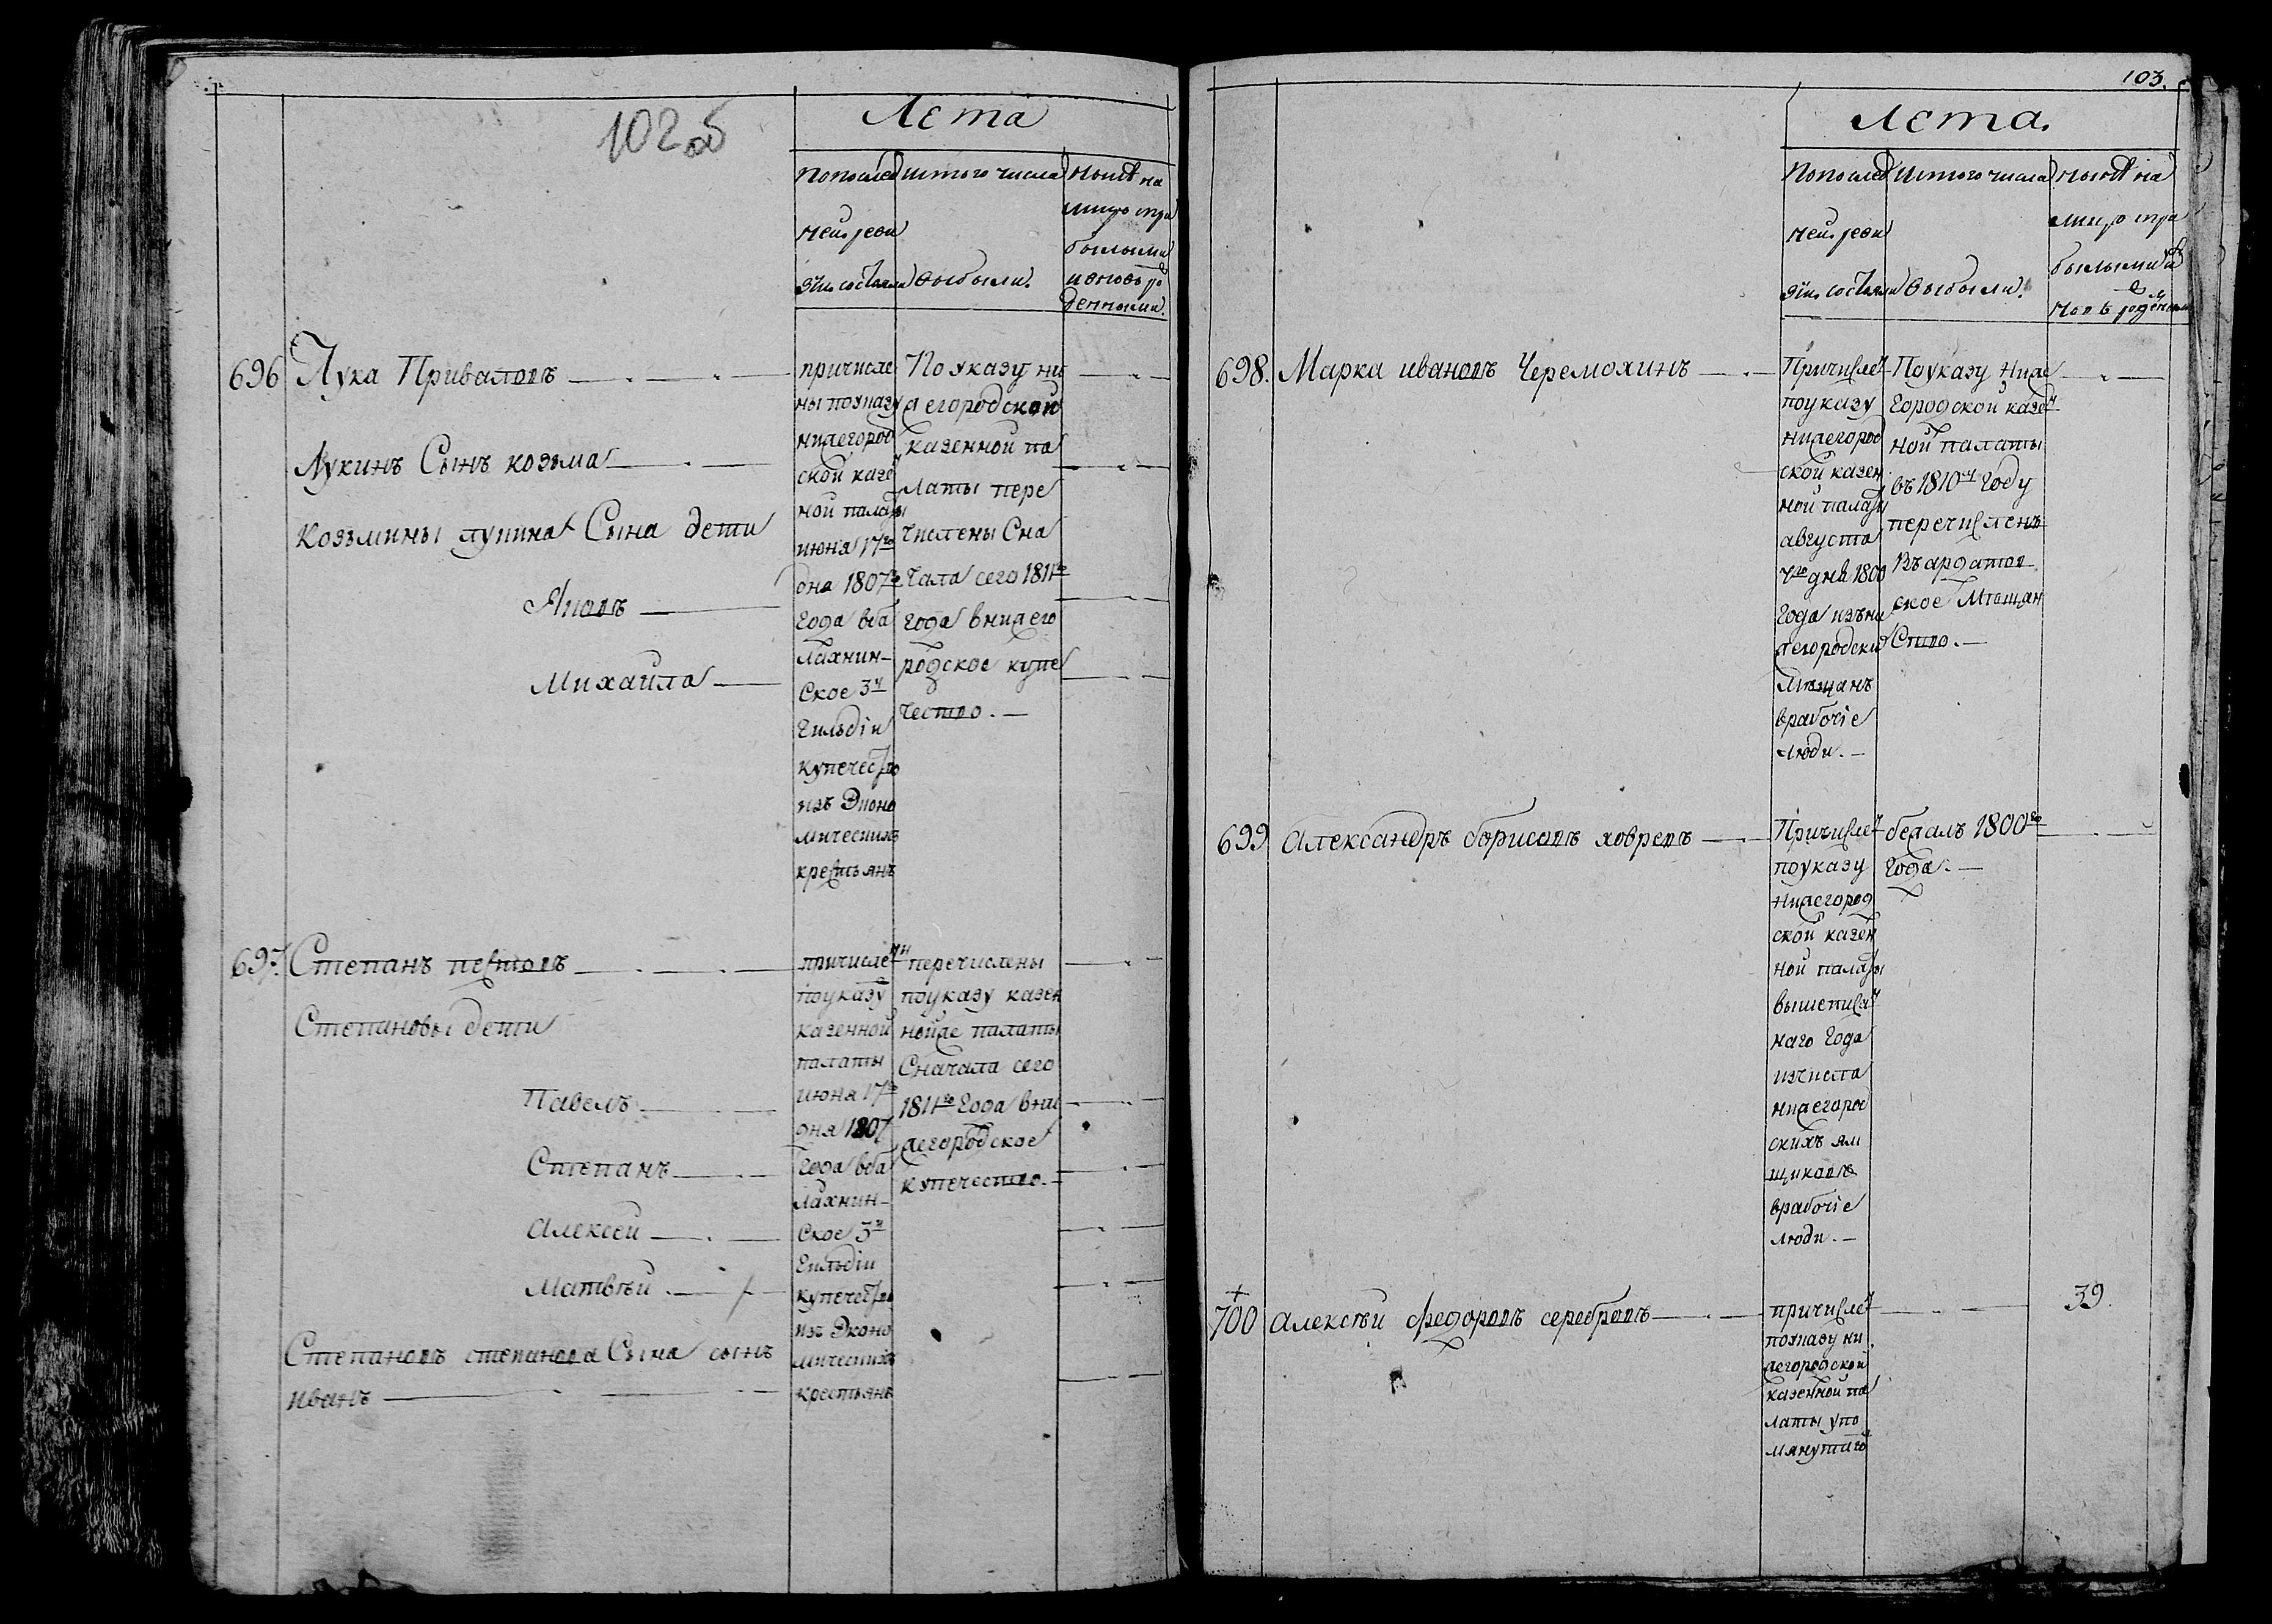 102об
Лета
По послед
ней реви
зіи состояли
Из того числа
выбыли.
Ныне на
лицо при
былыми
и вновь ро
жденными.
696 Лука Приваловъ
Лукинъ Сынъ козьма
Козьмины лукина Сына дети
Яковъ
Михаила
причисле
ны по указу
нижегород
ской казен
ной палаты
июня 17го
дня 1807го
года в ба
лахнин-
ское 3й
гильдіи
купечество
изъ Эконо
мическихъ
крестьянъ
По указу ни
жегородской
казенной па
латы пере
числены Сна
чала сего 1811го
года в нижего
родское купе
чество.
697. Степанъ пестовъ
Степановы дети
Павелъ
Степанъ
Алексеи
Матвѣи
Степановъ степанова Сына сынъ
иванъ
причислены
по указу
казенной
палаты
июня 17го
дня 1807
года в ба
лахнин-
ское 3й
гильдіи
купечество
изъ Эконо
мическихъ
крестьянъ
перечислены
по указу казен
нойже палаты
Сначала сего
1811го года в ни
жегородское
купечество.
103.
Лета.
По послед
ней реви
зіи состояли
Из того числа
выбыли.
Ныне на
лицо при
былыми и в
новь рожденными
698. Марка ивановъ Черемохинъ
Причислен
по указу
нижегород
ской казен
ной палаты
августа
7го дня 1800
года изъ ни
жегородских
Мѣщанъ
в рабочіе
люди.
По указу Ниже
городской казен
ной палаты
въ 1810м году
перечисленъ
Въ ардатов
ское Мѣщан
Ство.
699 Александръ борисовъ ховревъ
Причислен
по указу
нижегород
ской казен
ной палаты
вышеписан
наго года
из числа
нижегород
скихъ ям
щиковъ
в рабочіе
люди.
бежалъ 1800го
года.
700 Алексѣи федоровъ серебровъ
причислен
по указу ни
жегородской
казенной па
латы упо
мянутаго
39.